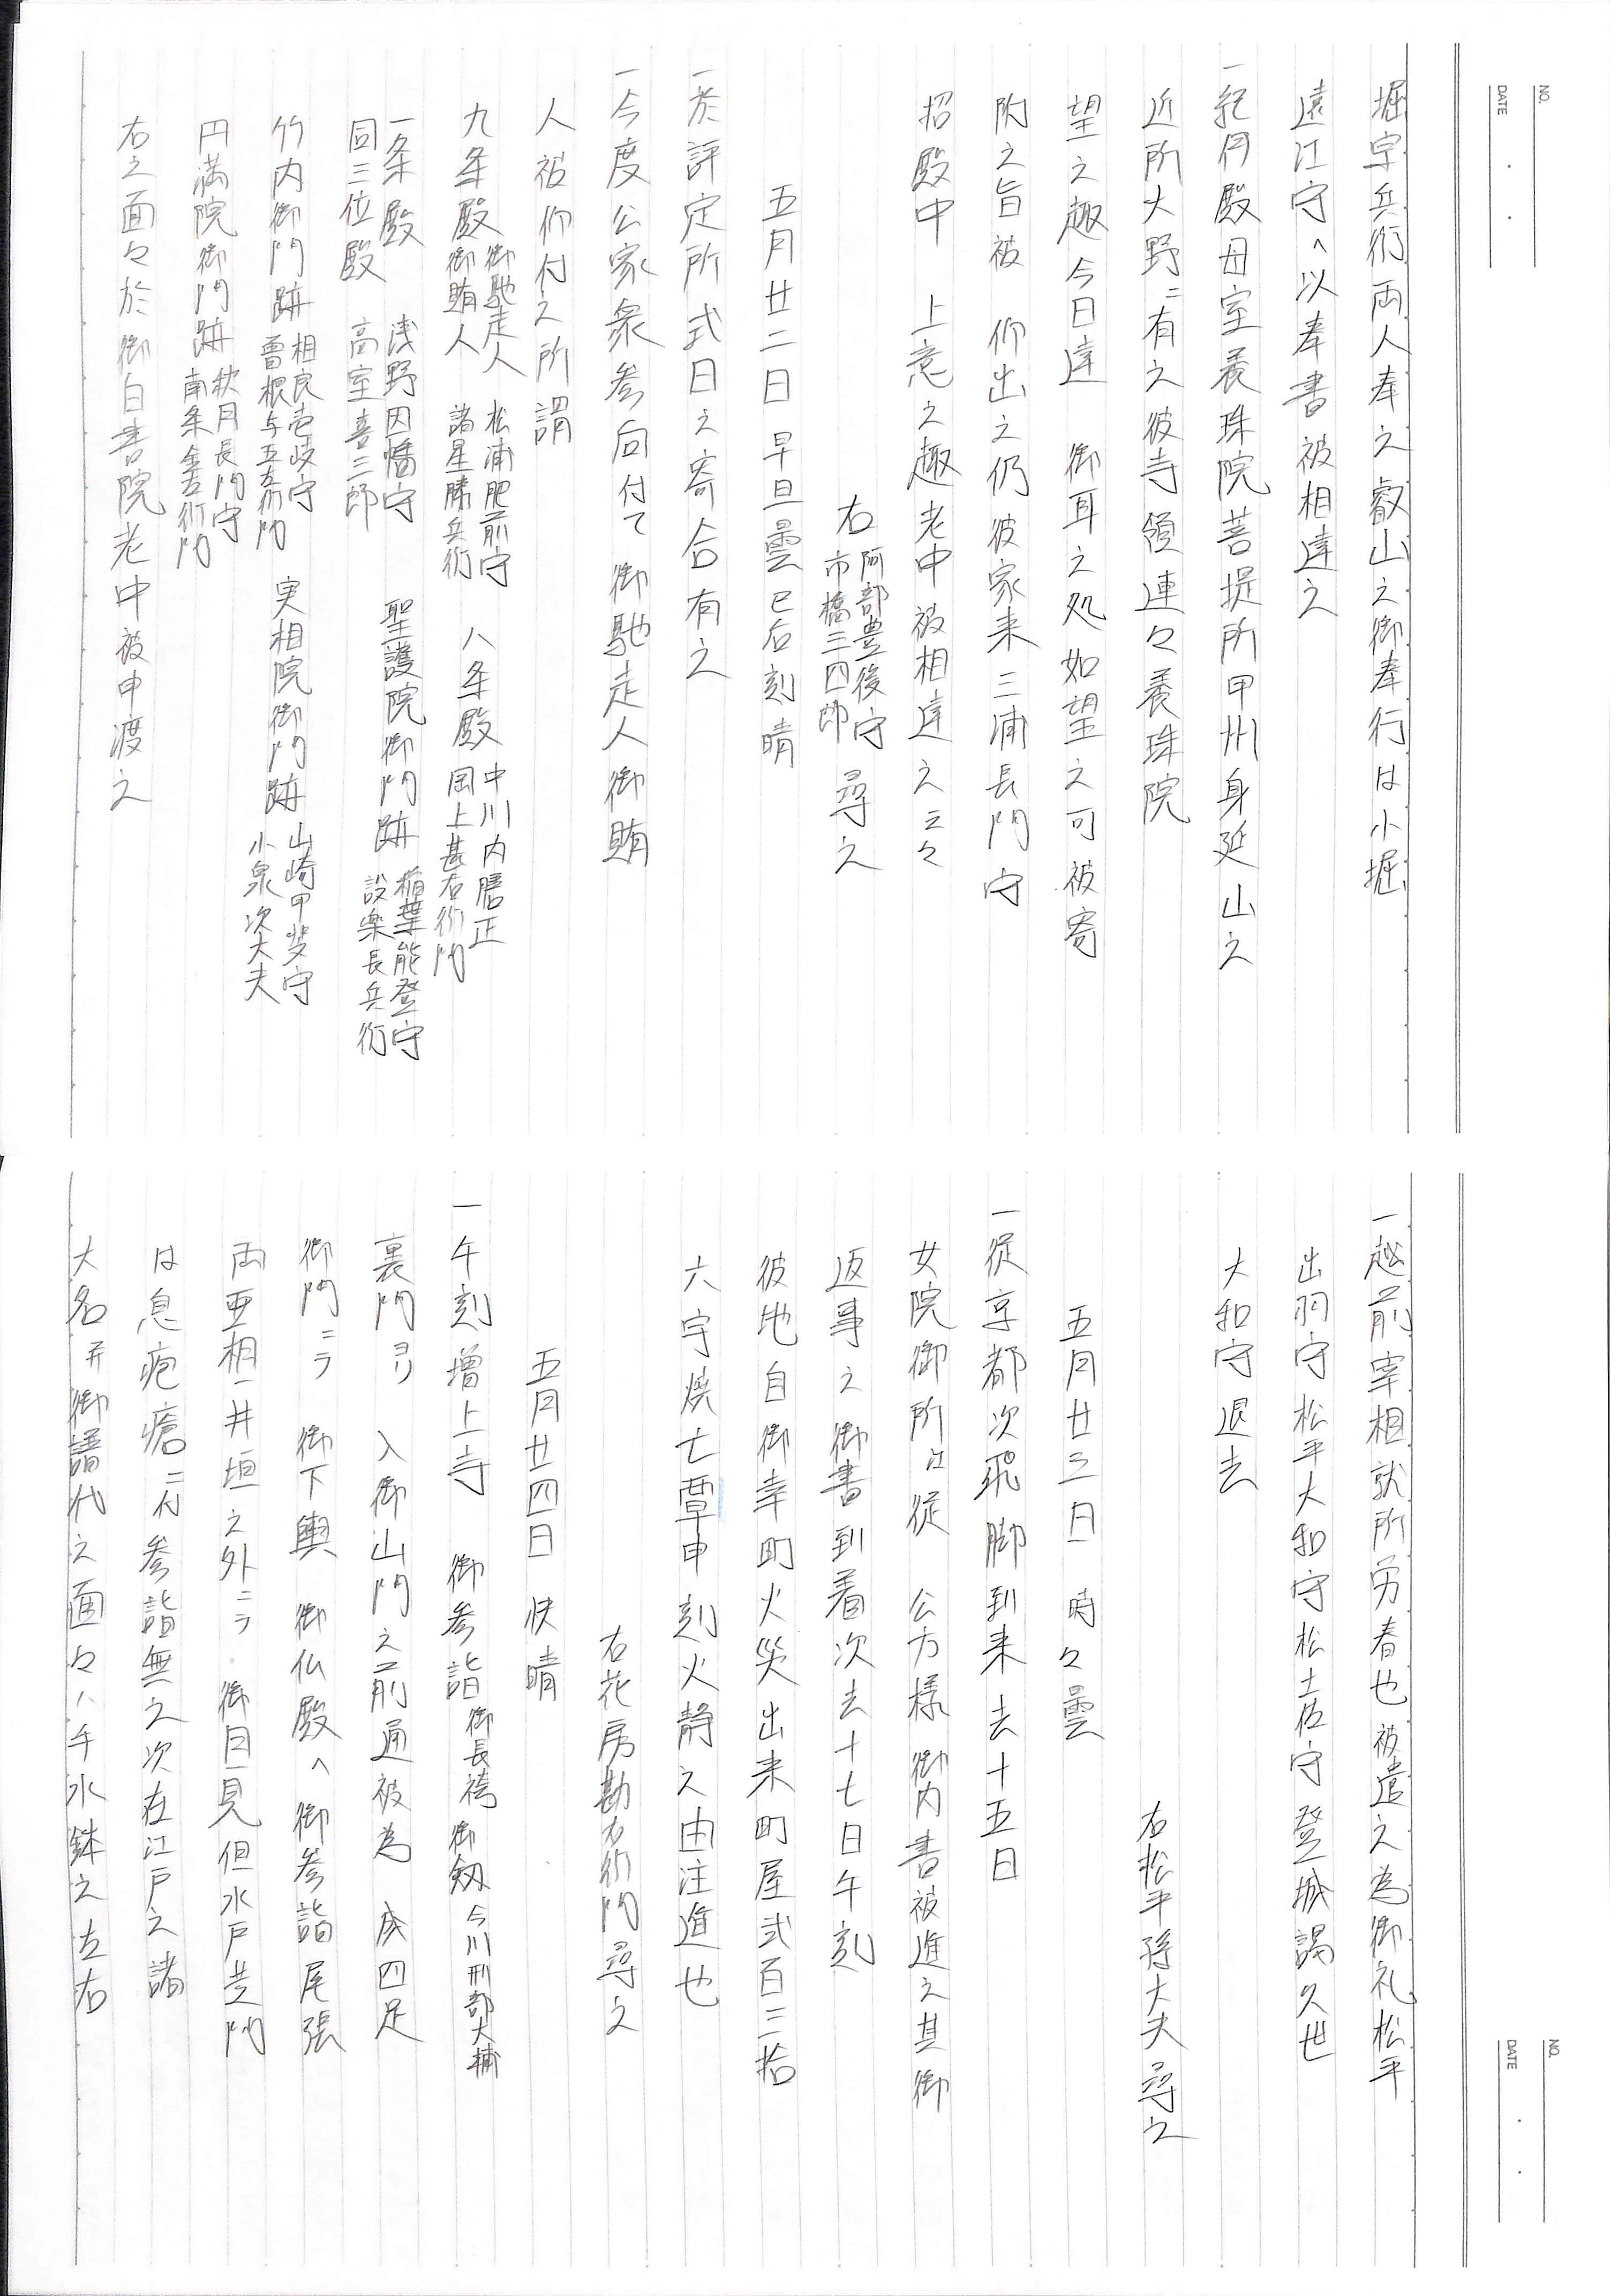 NO.
DATE
堀宇兵衛両人奉之叡山之御奉行は小堀
遠江守へ以奉書被相達之
一紀伊殿母室養珠院菩提所甲州身延山之
近所大野ニ有之彼寺領連々養珠院
望之趣今日達 御耳之処如望之可被寄
附之旨被 仰出之仍彼家来三浦長門守
招殿中 上意之趣老中被相達之云々
右 阿部豊後守 市橋三四郎 尋之
五月廿二日 早旦曇巳后刻晴
一於評定所式日之寄合有之
一今度公家衆参向付て 御馳走人御賄
人被仰付之所謂
九条殿 御馳走人 松浦肥前守 御賄人 諸星勝兵衛 八条殿 中川内膳正 岡上甚右衛門
一条殿 浅野因幡守
同三位殿 高室喜三郎 聖護院御門跡 稲葉能登守 設楽長兵衛
竹内御門跡 相良壱岐守 曽根与五左衛門 実相院御門跡 山崎甲斐守 小泉次大夫
円満院御門跡 秋月長門守 南条金左衛門
右之面々於御白書院老中被申渡之
NO.
DATE
一越前宰相就所労春也被遣之為御礼松平
出羽守松平大和守松土佐守登城謁久世
大和守退去
右松平孫大夫尋之
五月廿三日 時々曇
一従京都次飛脚到来去十五日
女院御所江従 公方様御内書被進之其御
返事之御書到着次去十七日午刻
彼地自御幸町火災出来町屋弐百三拾
六宇焼亡覃申刻火静之由注進也
右花房勘右衛門尋之
五月廿四日 快晴
一午刻増上寺 御参詣 御長袴 御剱 今川刑部大輔
裏門ヨリ 入御山門之前通被為 成四足
御門ニテ 御下輿 御仏殿へ御参詣尾張
両亜相一井垣之外ニテ 御目見但水戸黄門
は息疱瘡ニ付参詣無之次在江戸之諸
大名并御譜代之面々ハ手水鉢之左右